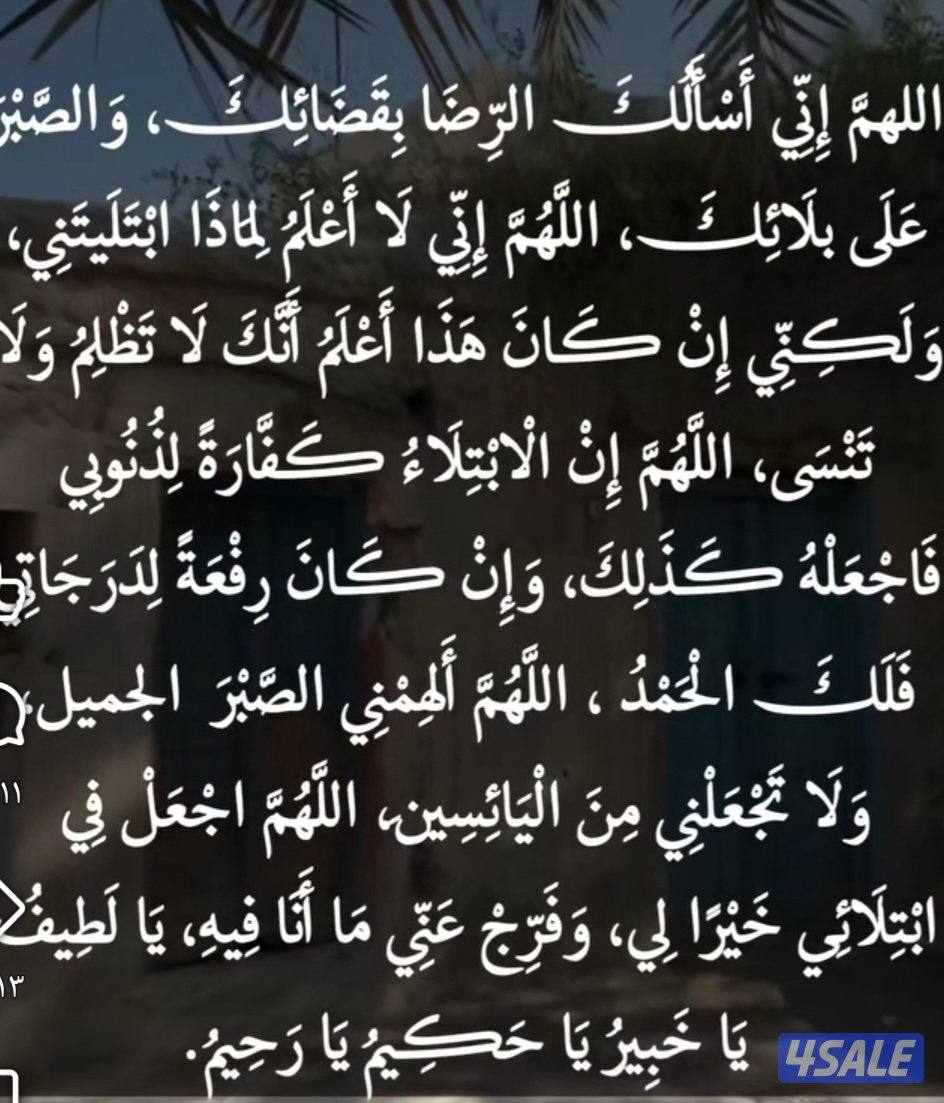 اللهمَّ إِنِّي أَسْأَلُكَ الرِّضَا بِقَضَائِكَ، وَالصَّبْرَ
عَلَى بلَائِكَ، اللَّهُمَّ إِنِّي لَا أَعْلَمُ لِمَاذَا ابْتَلَيتَنِي،
وَلَكِنِّي إِنْ كَانَ هَذَا أَعْلَمُ أَنَّكَ لَا تَظْلِمُ وَلَا
تَنْسَى، اللَّهُمَّ إِنْ الْابْتِلَاءُ كَفَّارَةً لِذُنُوبِي
فَاجْعَلْهُ كَذَلِكَ، وَإِنْ كَانَ رِفْعَةً لِدَرَجَاتِي
فَلَكَ الْحَمْدُ ، اللَّهُمَّ أَلْهِمْنِي الصَّبْرَ الجميل،
١١
وَلَا تَجْعَلْنِي مِنَ الْيَائِسِين، اللَّهُمَّ اجْعَلْ فِي
ابْتِلَائِي خَيْرًا لِي، وَفَرِّجْ عَنِّي مَا أَنَا فِيهِ، يَا لَطِيفُ
١٣
يَا خَبِيرُ يَا حَكِيمُ يَا رَحِيمُ.
4SALE